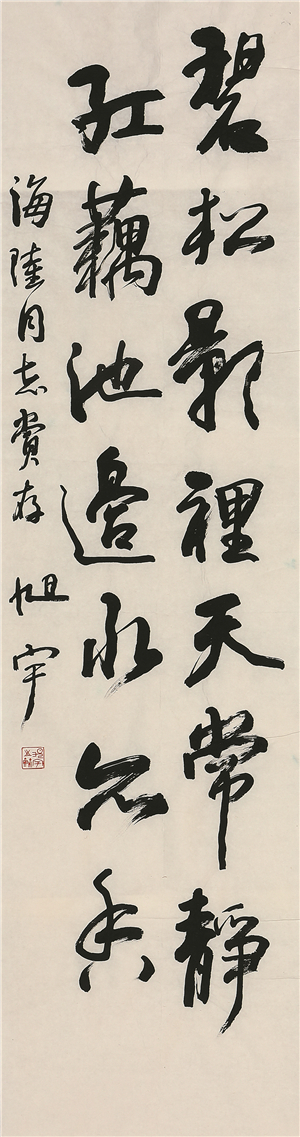 碧松影裡天常靜
紅藕池邊水亦香
海陸同志賞存 旭宇